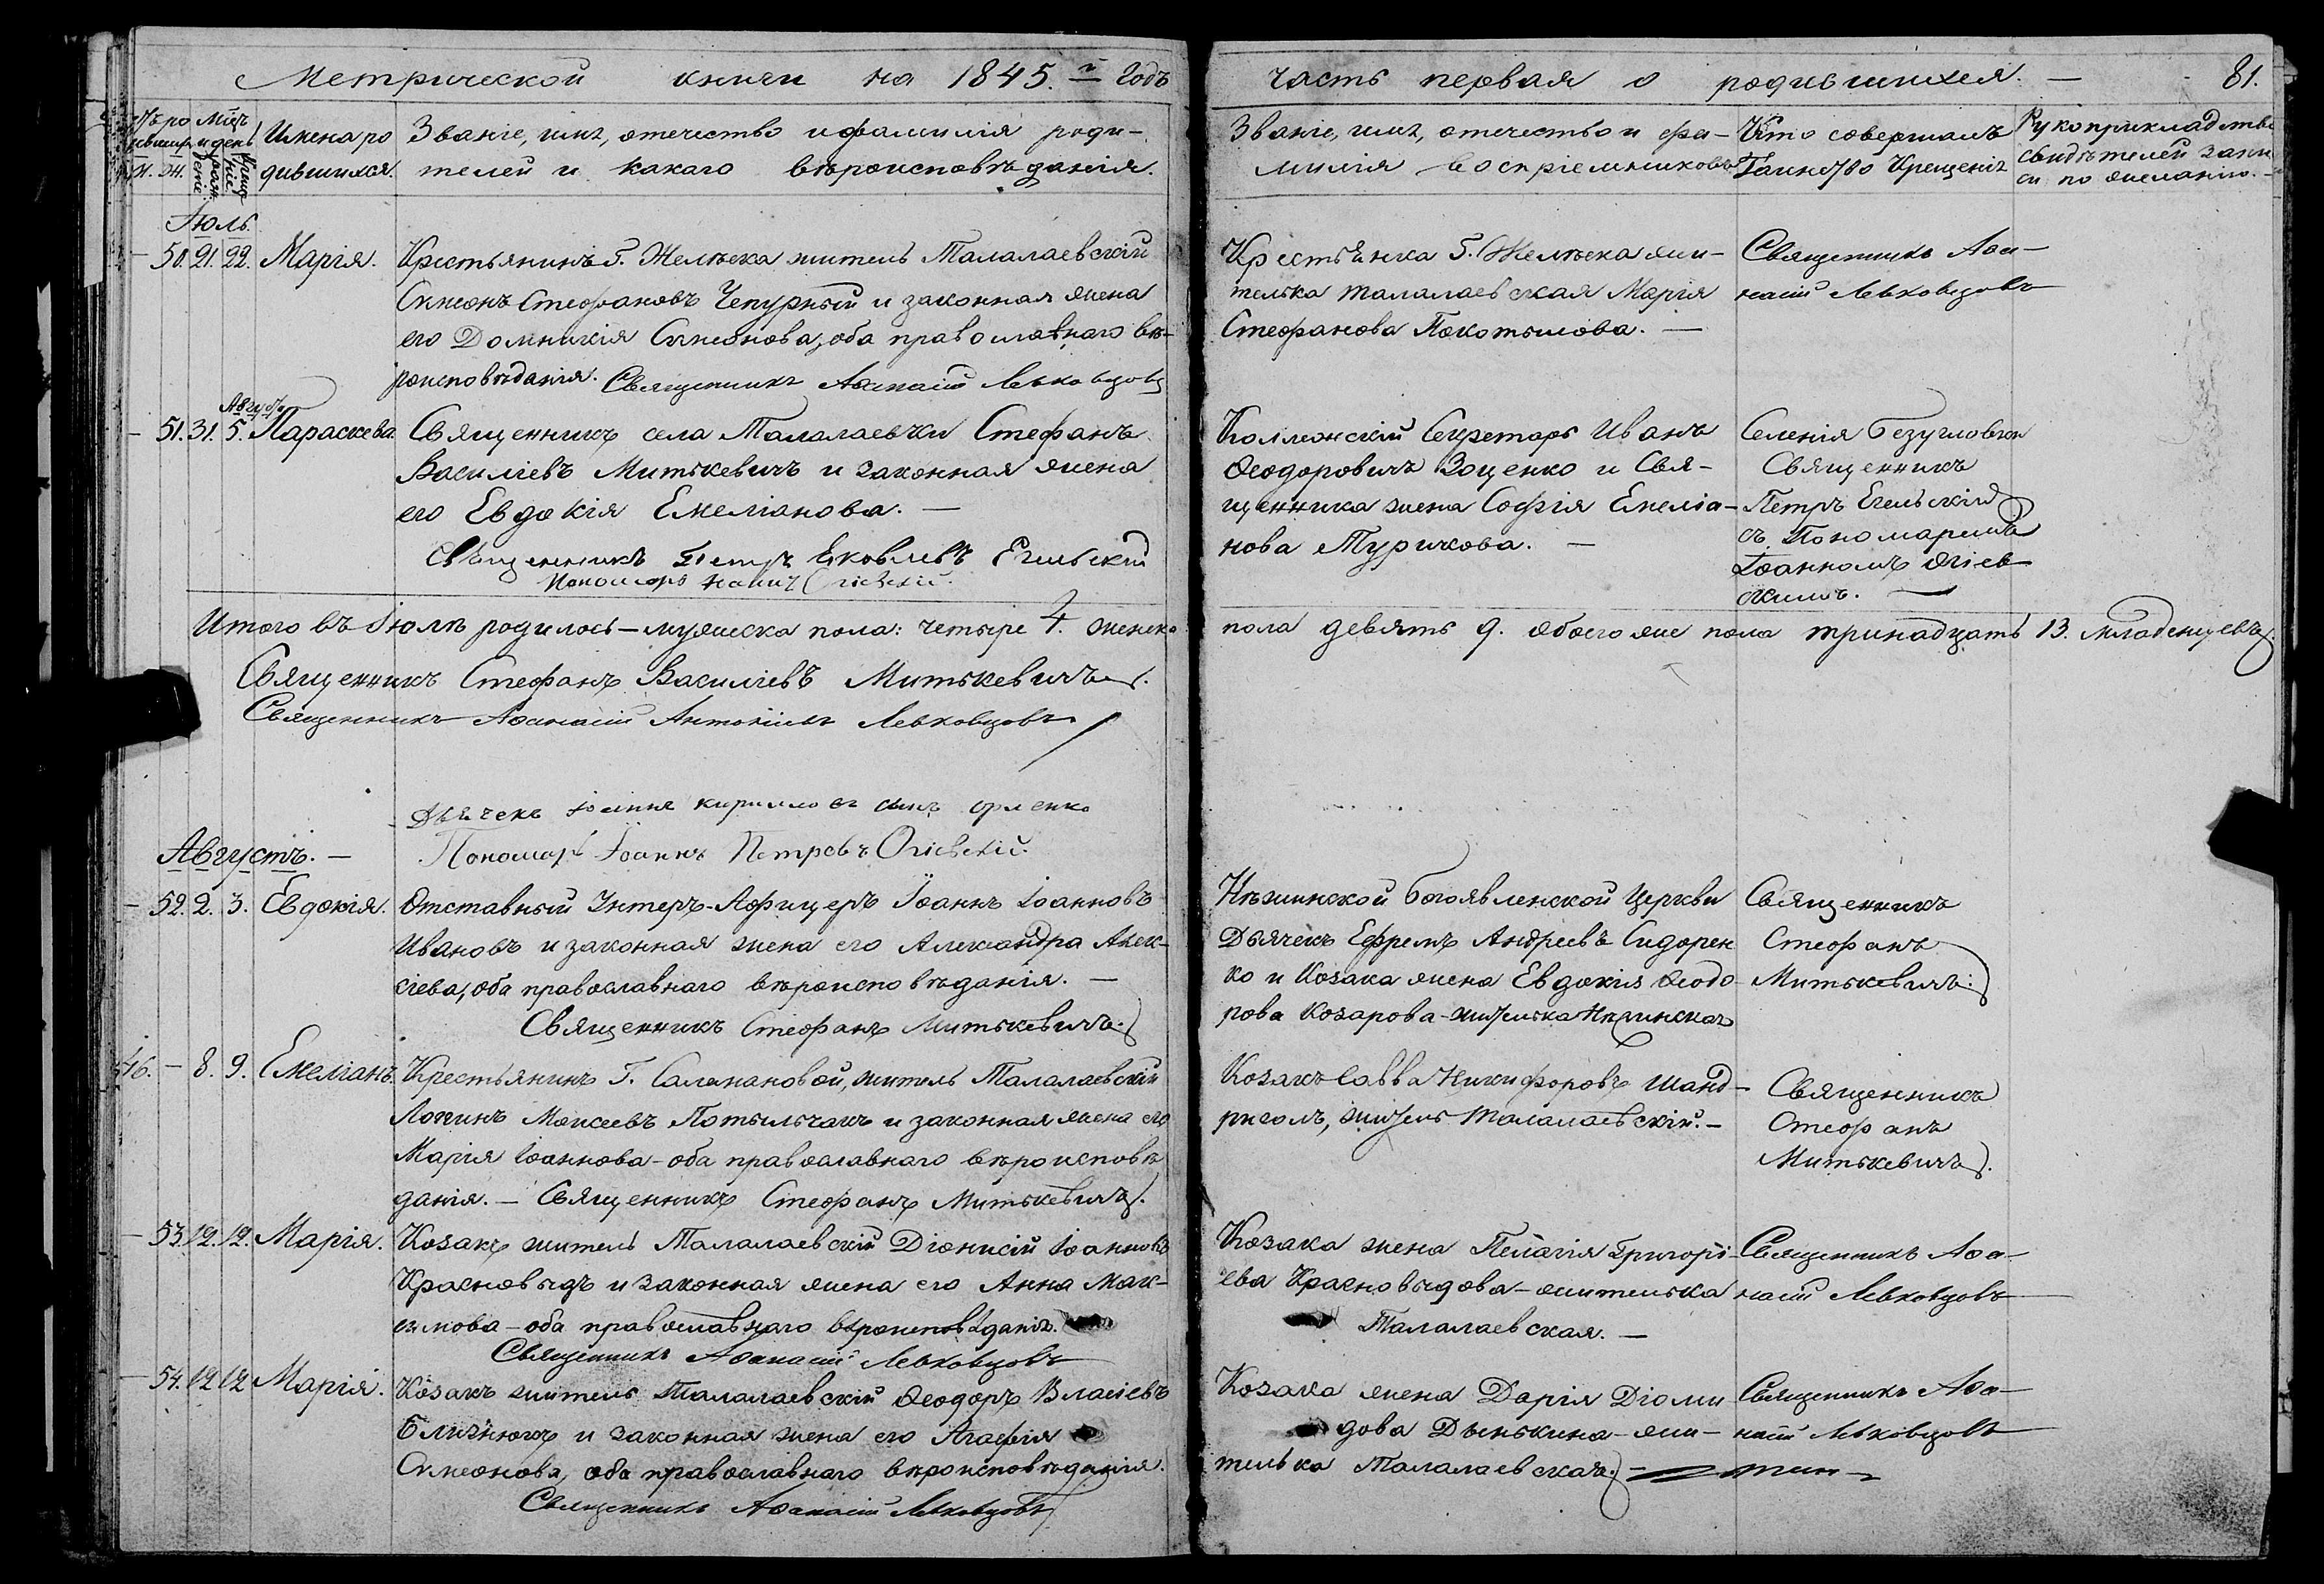 Метрической книги на 1845.й годъ
часть первая о родившихся. —
81.
Имена родившихся.
Званіе, имя, отечество и фамилія роди-
телей и какаго вѣроисповѣданія.
Званіе, имя, отечество и фа-
милія воспріемниковъ
Кто совершалъ
Таинство Крещенія
Рукоприкладство
свидѣтелей запи
си по желанію.
Іюль.
50. 21. 22. Марія.
Крестьянинъ Г. Желѣска житель Талалаевскій
Симеонъ Стефановъ Чепурный и законная жена
его Домникія Симеонова, оба православнаго вѣ-
роисповѣданія. Священникъ Афанасій Левковцовъ
Крестьянка Г. Желѣска жи-
телька талалаевская Марія
Стефанова Покотылова. —
Священникъ Афа-
насій Левковцовъ
Августъ
51. 31. 5. Параскева.
Священникъ села Талалаевки Стефанъ
Василіевъ Митькевичъ и законная жена
его Евдокія Емеліанова. —
Священникъ Петръ Яковлевъ Егельский
Пономарь Іоаннъ Огіевскій.
Коллежскій Секретарь Иванъ
Ѳеодоровичъ Зоценко и Свя-
щенника жена Софія Емеліа-
нова Туричкова. —
Селенія Безугловки
Священникъ
Петръ Егельскій
съ Пономаремъ
Іоанномъ Огіев-
скимъ. —
Итого въ Іюлѣ родилось — мужеска пола: четыре 4. женска
пола девять 9. обоего же пола тринадцать 13. младенцевъ.
Священникъ Стефанъ Василіевъ Митькевичъ.
Священникъ Афанасій Антоніевъ Левковцовъ
Дьячекъ Іоаннъ Кирилловъ сынъ Орленко
Пономарь Іоаннъ Петровъ Огіевскій.
Августъ. —
52. 2. 3. Евдокія.
Отставный Унтеръ-Афицеръ Іоаннъ Іоанновъ
Ивановъ и законная жена его Александра Алек-
сіева, оба православнаго вѣроисповѣданія. —
Священникъ Стефанъ Митькевичъ.
Нѣжинской Богоявленской Церкви
Дьячекъ Ефремъ Андреевъ Сидорен
ко и Козака жена Евдокія Ѳеодо-
рова Козарова - жителька Нѣжинская
Священникъ
Стефанъ
Митькевичъ.
46. — 8. 9. Емеліанъ.
Крестьянинъ Г. Саламановой, житель Талалаевскій
Логинъ Моисеевъ Потыльчакъ и законная жена его
Марія Іоаннова - оба православнаго вѣроисповѣ
данія. — Священникъ Стефанъ Митькевичъ.
Козакъ Савва Никифоровъ Шанд-
риголъ, житель Талалаевскій. —
Священникъ
Стефанъ
Митькевичъ.
53. 12. 12. Марія.
Козакъ житель Талалаевскій Діонисій Іоанновъ
Красновыдъ и законная жена его Анна Мак-
симова - оба православнаго вѣроисповѣданія.
Священникъ Афанасій Левковцовъ
Козака жена Пелагія Григорі-
ева Красновыдова - жителька
Талалаевская. —
Священникъ Афа-
насій Левковцовъ
54. 12. 12. Марія.
Козакъ житель Талалаевскій Ѳеодоръ Власіевъ
Близнюкъ и законная жена его Агафія
Симеонова, оба православнаго вѣроисповѣданія.
Священникъ Афанасій Левковцовъ
Козака жена Дарія Діоми
дова Дынькина - жи-
телька Талалаевская. —
Священникъ Афа-
насій Левковцовъ